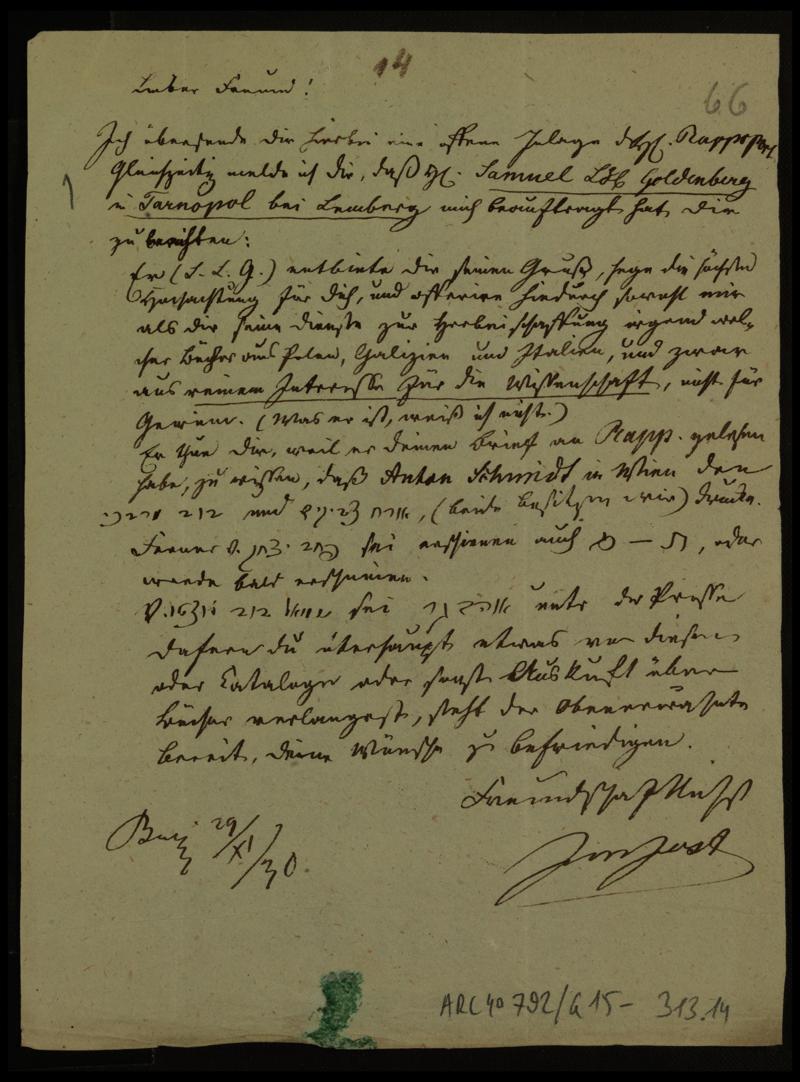 14
66
Lieber Freund!
Ich übersende Dir hierbei eine offene Inlage d. H. Rappoport
Gleichzeitig melde ich Dir, daß H. Samuel Löb Goldenberg
in Tarnopol bei Lemberg mich beauftragt hat Dir
zu berichten:
Er (S. L. G.) entbiete Dir seinen Gruß, hege die höchste
Hochachtung für Dich, und offerire hiedurch sowohl mir
als Dir seine Dienste zur Herbeischaffung irgend wel-
cher Bücher aus Polen, Galizien und Italien, und zwar
aus reinem Interesse für die Wissenschaft, nicht für
Gewinn. (Was er ist, weiß ich nicht.)
Er thue Dir, weil er Deinen Brief an Rapp. gelesen
habe, zu wissen, daß Anton Schmidt in Wien den
und (beide besitzen wir) druckte.
Ferner v. sei erschienen auch מ — ת, oder
werde bald erscheinen.
sei unter der Presse
Dafern Du überhaupt etwas von diesen
oder Cataloge oder sonst Auskuft über
Bücher verlangst, steht der Obenerwähnte
bereit, Deine Wünsche zu befriedigen.
Freundschaftlichst
29/XI/30
Jost
ARC 4o 792/G15- 313.14